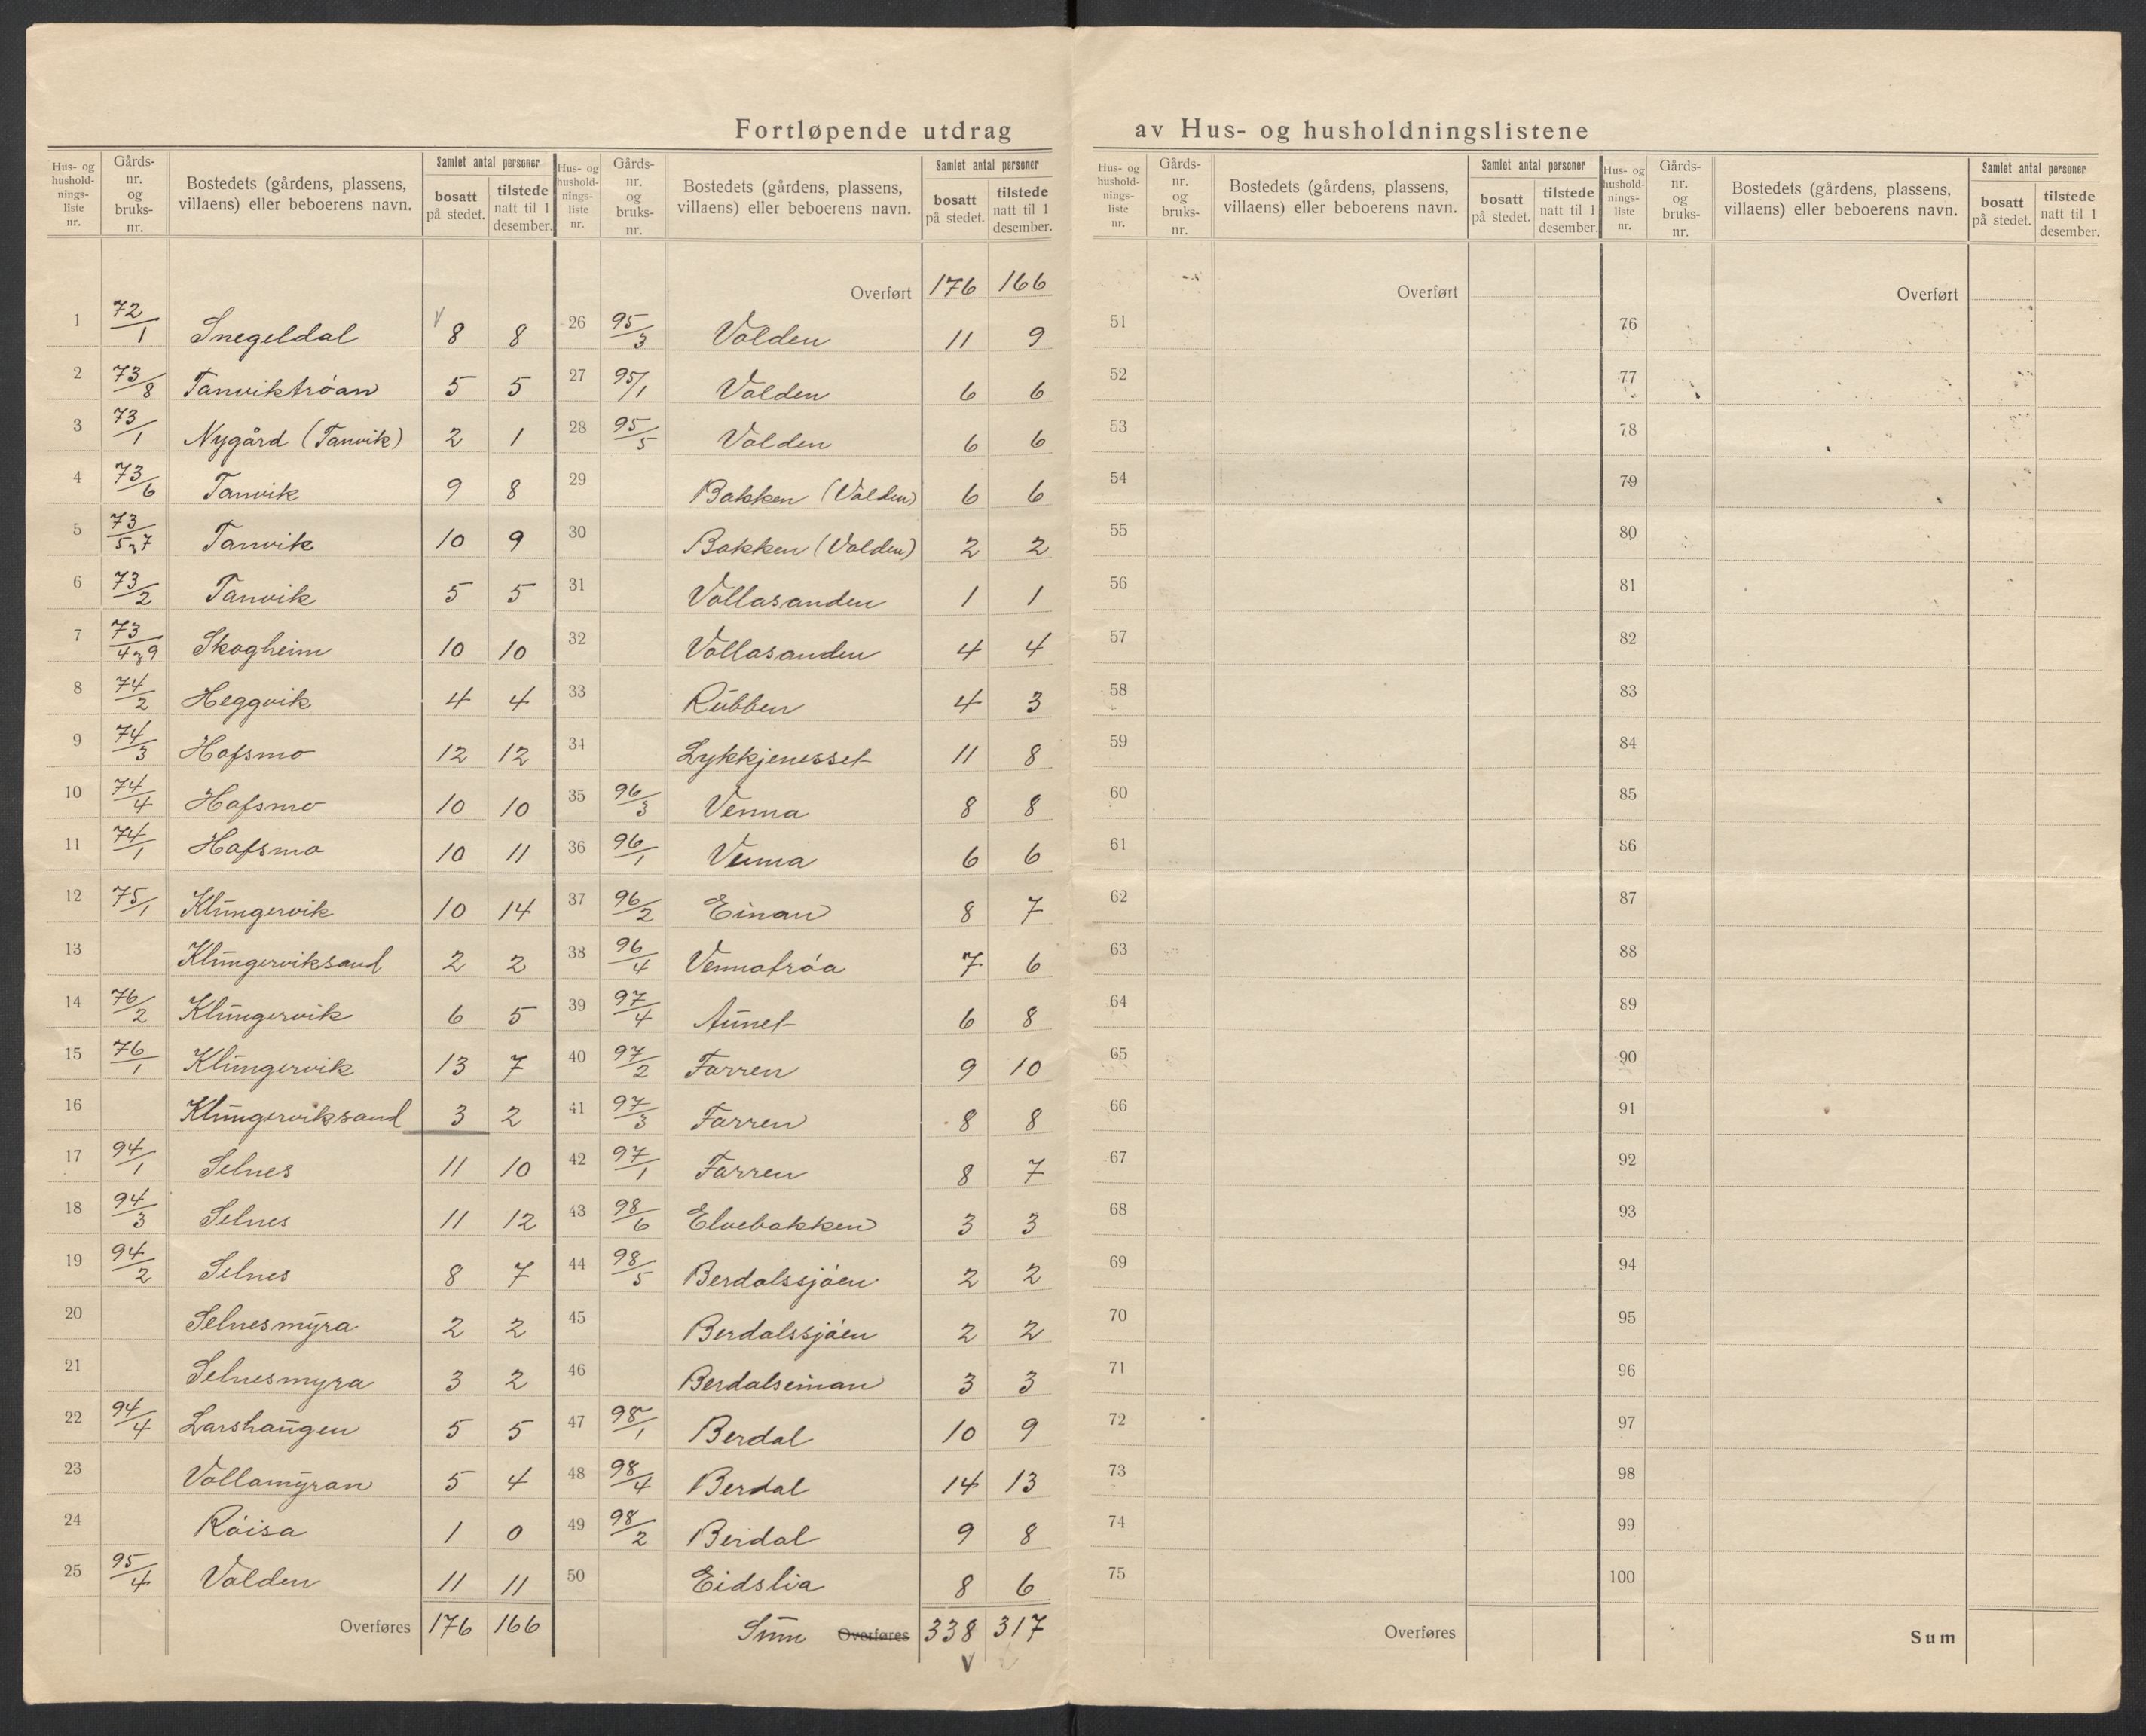 Fortløpende utdrag av Hus- og husholdningslistene
Hus- og husholdnings-liste nr. Gårds-nr. og bruks-nr. Bostedets (gårdens, plassens, villaens) eller beboerens navn. Samlet antal personer bosatt på stedet. tilstede natt til 1 desember.
1 72/1 Snegeldal 8 8
2 73/8 Tanviktrøan 5 5
3 73/1 Nygård (Tanvik) 2 1
4 73/6 Tanvik 9 8
5 73/5 og 7 Tanvik 10 9
6 73/2 Tanvik 5 5
7 73/4 og 9 Skogheim 10 10
8 74/2 Heggvik 4 4
9 74/3 Hafsmo 12 12
10 74/4 Hafsmo 10 10
11 74/1 Hafsmo 10 11
12 75/1 Klungervik 10 14
13 Klungerviksand 2 2
14 76/2 Klungervik 6 5
15 76/1 Klungervik 13 7
16 Klungerviksand 3 2
17 94/1 Selnes 11 10
18 94/3 Selnes 11 12
19 94/2 Selnes 8 7
20 Selnesmyra 2 2
21 Selnesmyra 3 2
22 94/4 Larshaugen 5 5
23 Vollamyran 5 4
24 Røisa 1 0
25 95/4 Volden 11 11
Overføres 176 166
Hus- og husholdnings-liste nr. Gårds-nr. og bruks-nr. Bostedets (gårdens, plassens, villaens) eller beboerens navn. Samlet antal personer bosatt på stedet. tilstede natt til 1 desember.
Overført 176 166
26 95/3 Volden 11 9
27 95/1 Volden 6 6
28 95/5 Volden 6 6
29 Bakken (Volden) 6 6
30 Bakken (Volden) 2 2
31 Vollasanden 1 1
32 Vollasanden 4 4
33 Rubben 4 3
34 Lykkjenesset 11 8
35 96/3 Venna 8 8
36 96/1 Venna 6 6
37 96/2 Einan 8 7
38 96/4 Vennatrøa 7 6
39 97/4 Aunet 6 8
40 97/2 Farren 9 10
41 97/3 Farren 8 8
42 97/1 Farren 8 7
43 98/6 Elvebakken 3 3
44 98/5 Berdalssjøen 2 2
45 Berdalssjøen 2 2
46 Berdalseinan 3 3
47 98/1 Berdal 10 9
48 98/4 Berdal 14 13
49 98/2 Berdal 9 8
50 Eidslia 8 6
Sum Overføres 338 317
Hus- og hushold-nings-liste nr. Gårds-nr. og bruks-nr. Bostedets (gårdens, plassens, villaens) eller beboerens navn. Samlet antal personer bosatt på stedet. tilstede natt til 1 desember.
Overført
51
52
53
54
55
56
57
58
59
60
61
62
63
64
65
66
67
68
69
70
71
72
73
74
75
Overføres
Hus- og hushold-nings-liste nr. Gårds-nr. og bruks-nr. Bostedets (gårdens, plassens, villaens) eller beboerens navn. Samlet antal personer bosatt på stedet. tilstede natt til 1 desember.
Overført
76
77
78
79
80
81
82
83
84
85
86
87
88
89
90
91
92
93
94
95
96
97
98
99
100
Sum